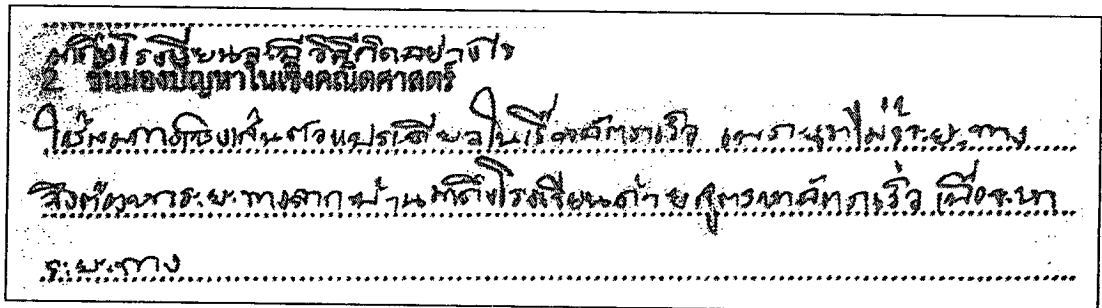 ถึงโรงเรียนจะมีวิธีคิดอย่างไร
2 ขั้นมองปัญหาในเชิงคณิตศาสตร์
ใช้ระยะทางเป็นตัวแปรเดียวในเรื่องอัตราเร็ว เพราะเราไม่รู้ระยะทาง
จึงต้องหาระยะทางจากบ้านถึงโรงเรียนด้วยสูตรหาอัตราเร็ว เพื่อจะหา
ระยะทาง